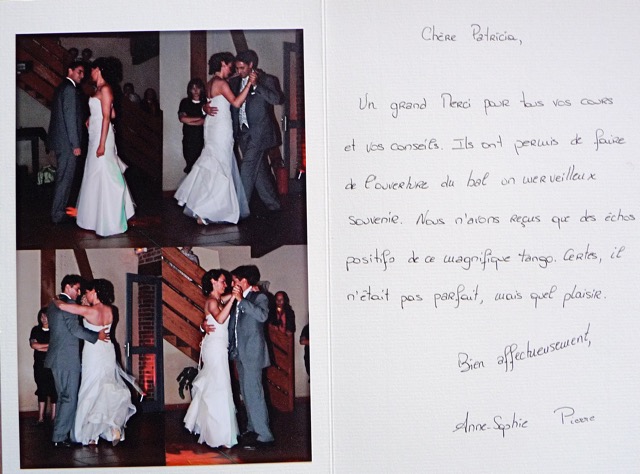 Chère Patricia,
Un grand Merci pour tous vos cours
et vos conseils. Ils ont permis de faire
de l'ouverture du bal un merveilleux
souvenir. Nous n'avons reçus que des échos
positifs de ce magnifique tango. Certes, il
n'était pas parfait, mais quel plaisir.
Bien affectueusement,
Anne-Sophie Pierre